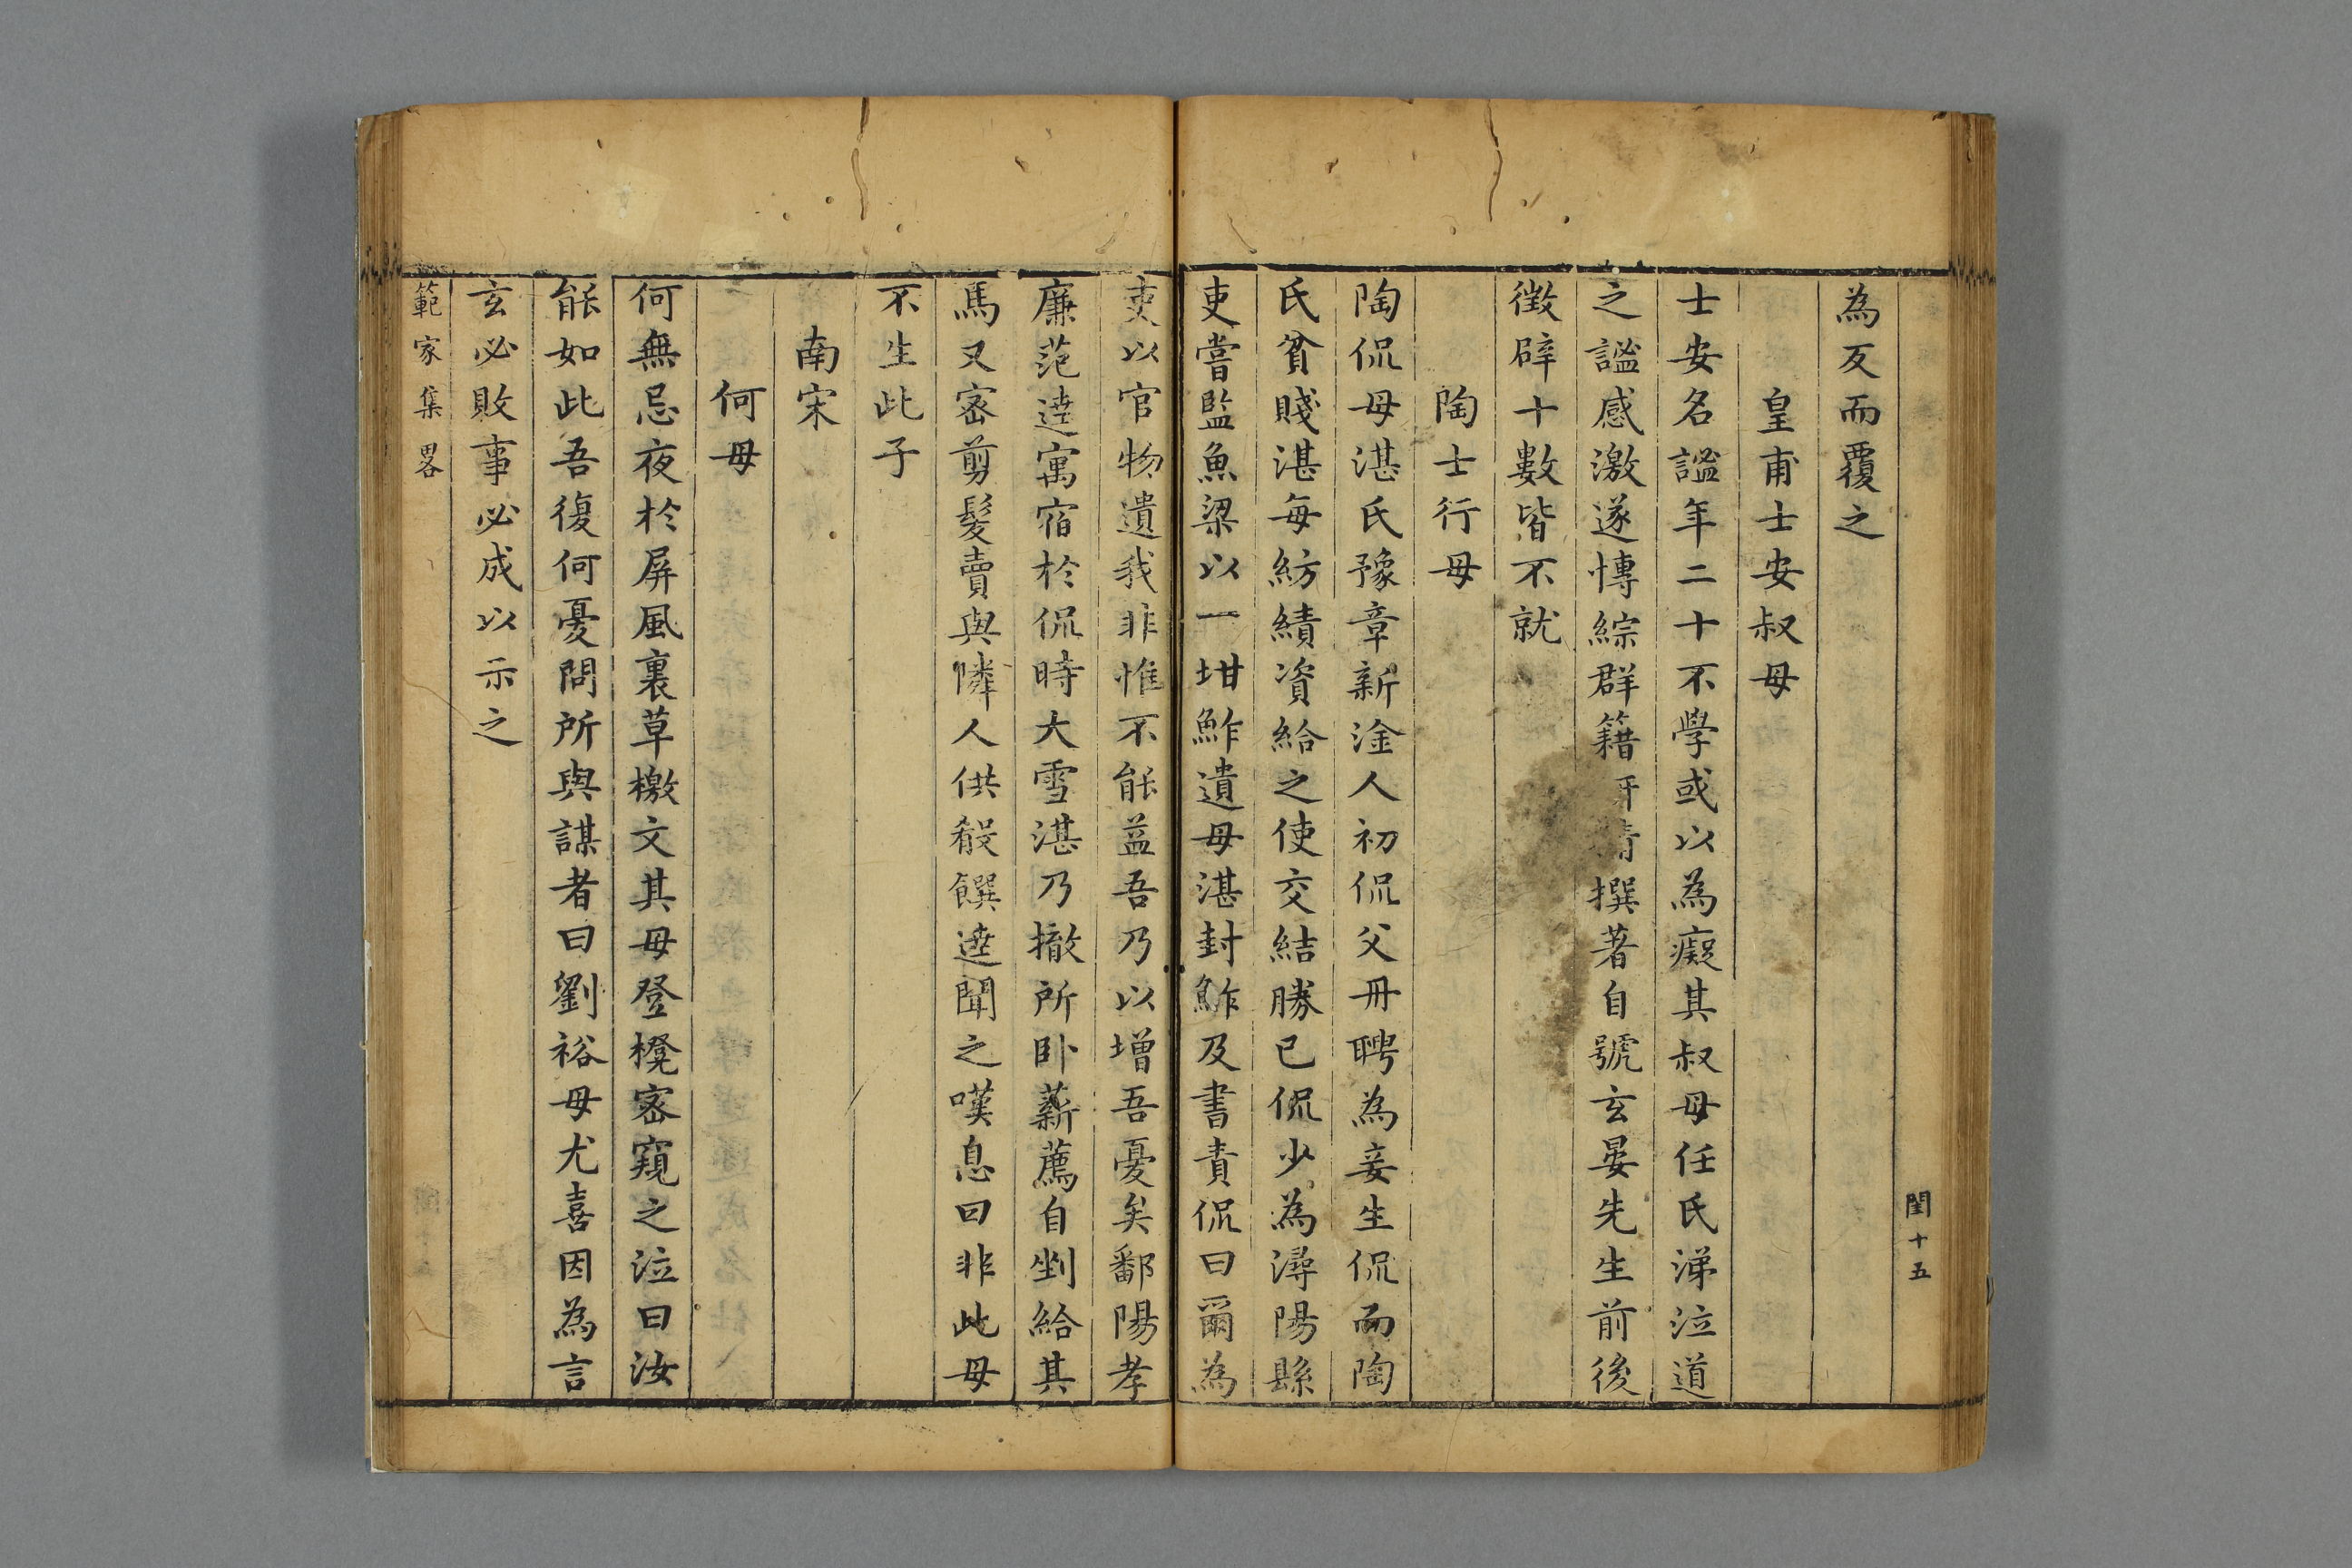 閨十五
為反而覆之
皇甫士安叔母
士安名謐年二十不學或以為癡其叔母任氏涕泣道
之謐感激遂慱綜群籍撰著自號玄晏先生前後
徵辟十數皆不就
陶士行母
陶侃母湛氏豫章新淦人初侃父冊聘為妾生侃而陶
氏貧賤湛每紡績資給之使交結勝已侃少為潯陽縣
吏嘗監魚梁以一坩鮓遺母湛封鮓及書責侃曰爾為
吏以官物遺我非惟不能益吾乃以增吾憂矣鄱陽孝
廉范逵寓宿於侃時大雪湛乃撤所卧薪薦自剉給其
馬又宻剪髮賣與隣人供殽饌逵聞之嘆息曰非此母
不生此子
南宋
何母
何無忌夜於屏風裏草檄文其母登櫈宻窺之泣曰汝
能如此吾復何憂問所與謀者曰劉裕母尤喜因為言
玄必敗事必成以示之
範家集畧